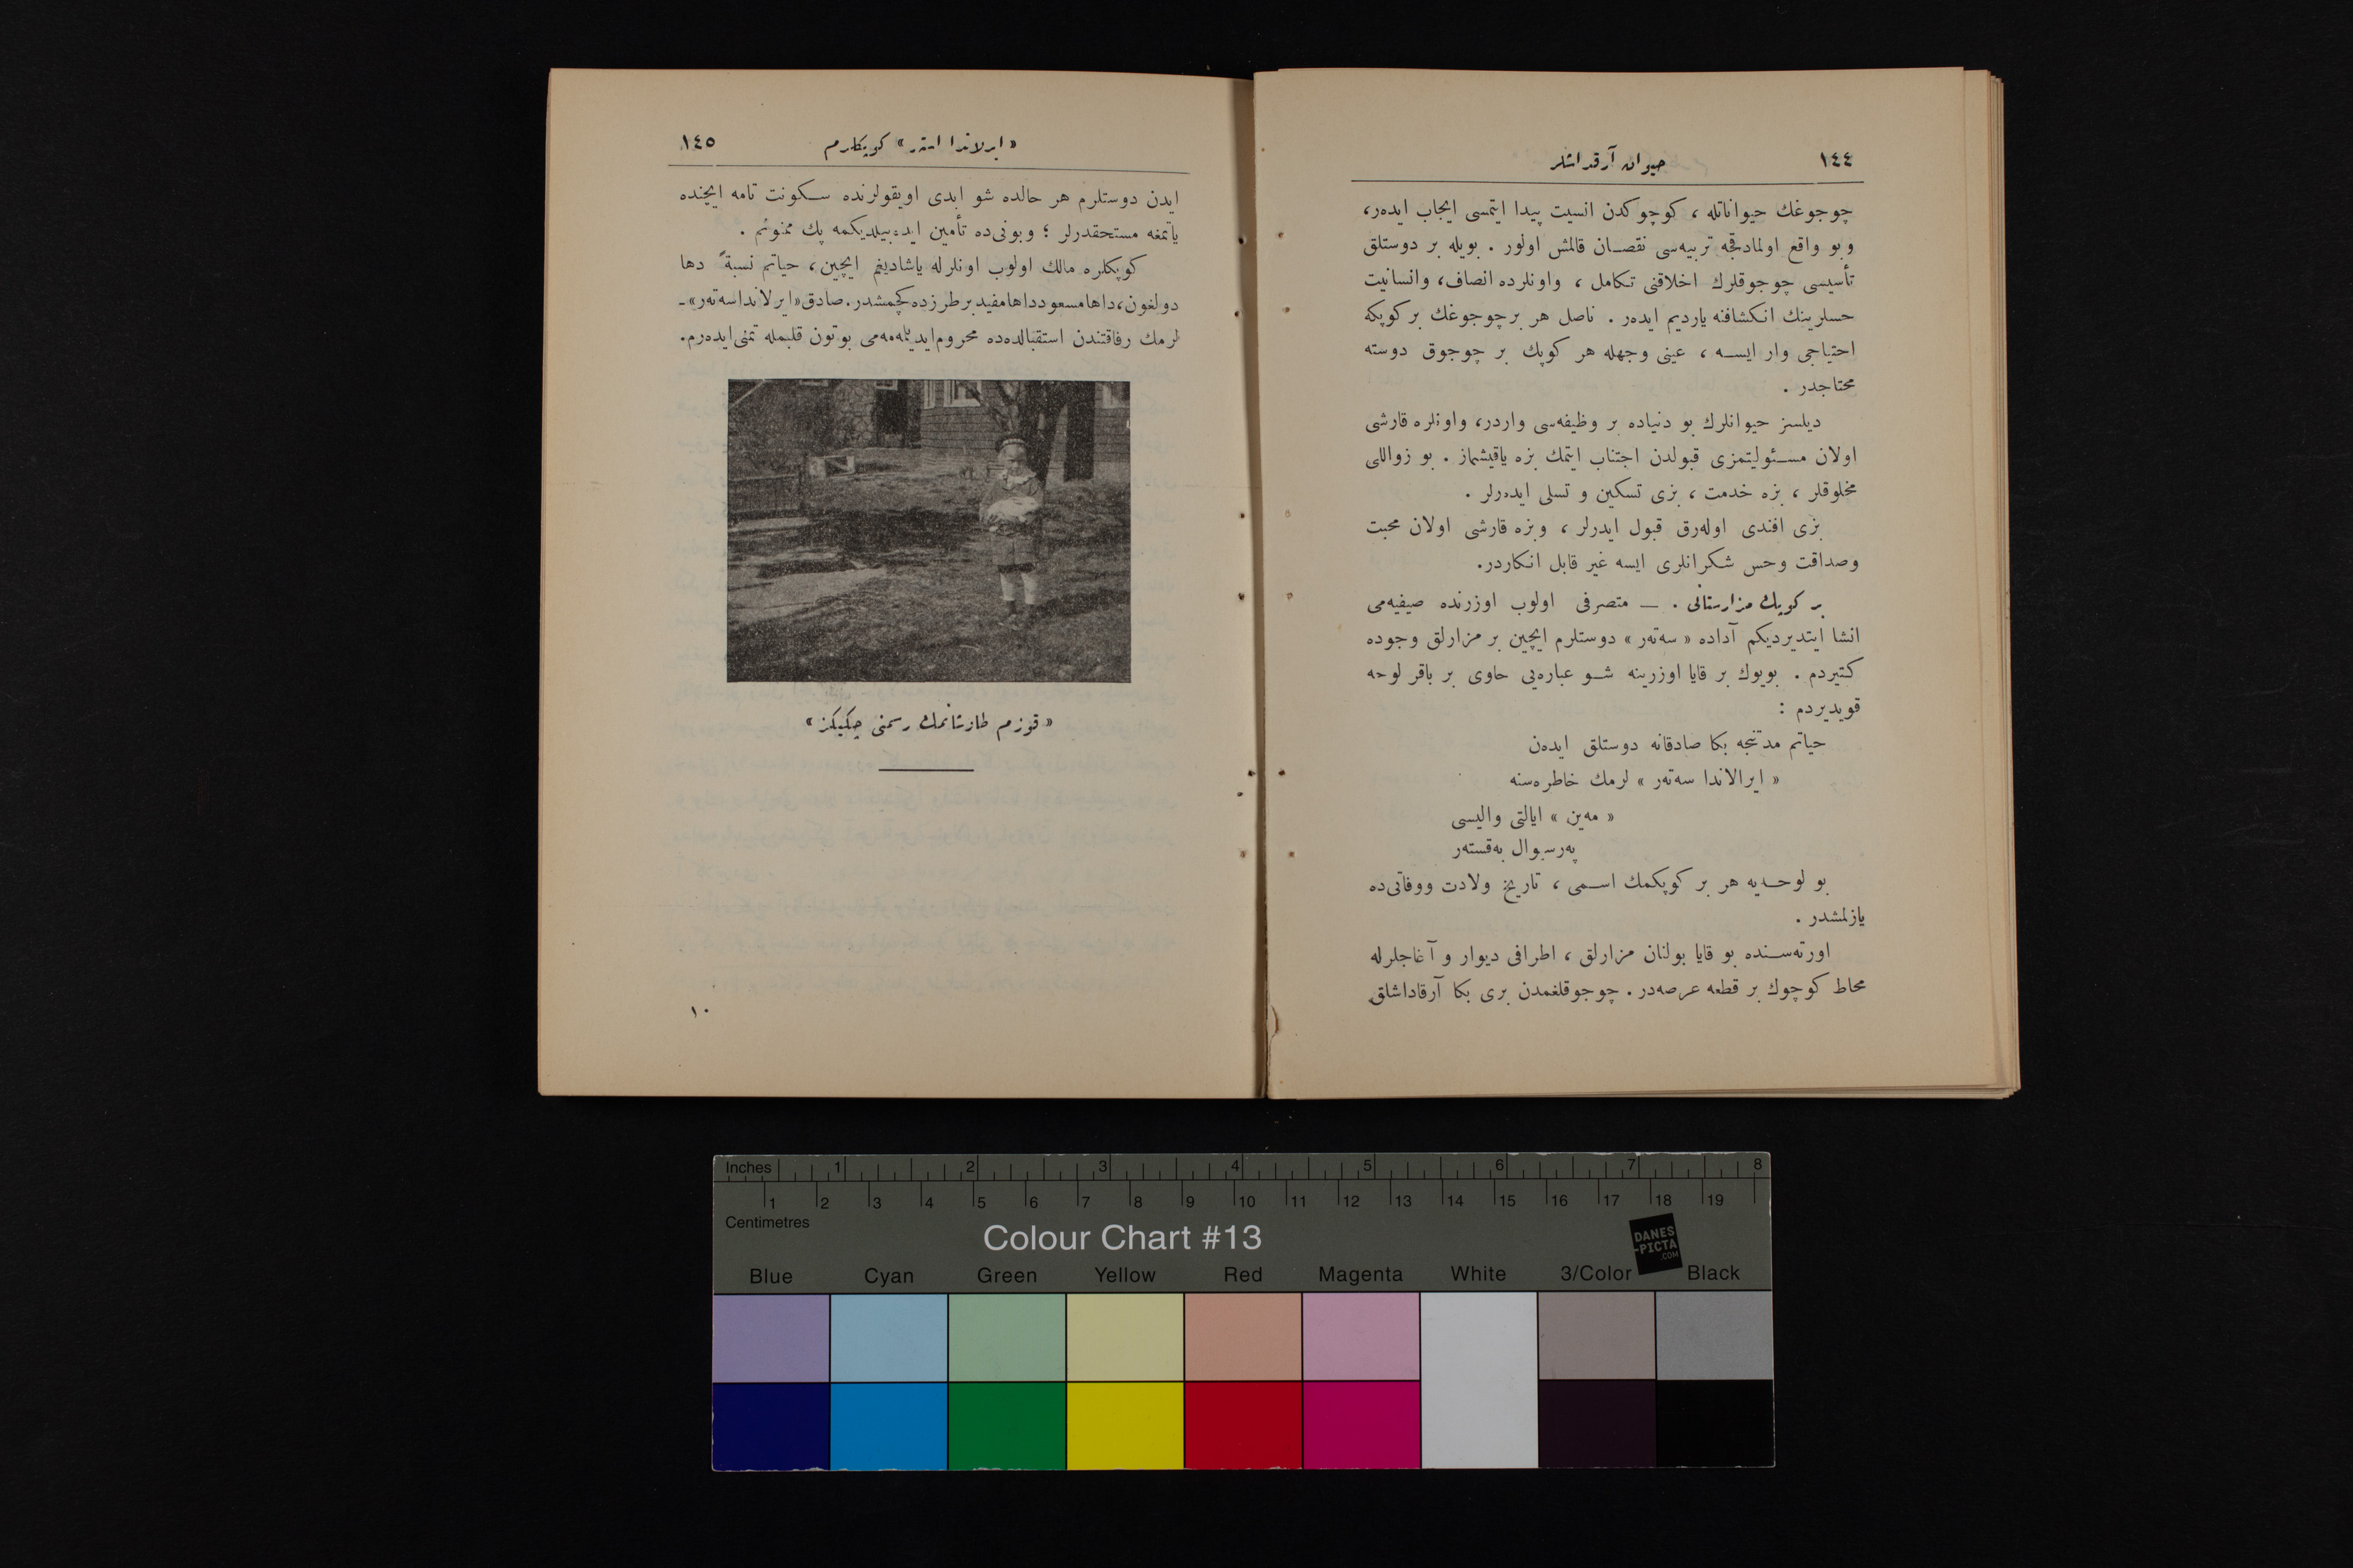 ١٤٤
حیوان آرقداشلر
چوجوغك حیواناتله ، کوچوکدن انسیت پیدا ایتمسی ایجاب ایده‌ر،
وبو واقع اولمادقجه تربیه‌سی نقصـان قالمش اولور . بویله بر دوستلق
تأسیسی چوجوقلرك اخلاقنی تکامل ، واونلرده انصاف، وانسانیت
حسلرینك انکشافنه یاردیم ایده‌ر . ناصل هر برچوجوغك بر کوپکه
احتیاجی وار ایسـه ، عینی وجهله هر کوپك بر چوجوق دوسته
محتاجدر .
دیلسز حیوانلرك بو دنیاده بر وظیفه‌سی واردر، واونلره قارشی
اولان مسـئولیتمزی قبولدن اجتناب ایتمك بزه یاقیشماز . بو زواللی
مخلوقلر ، بزه خدمت ، بزی تسکین و تسلی ایده‌رلر .
بزی افندی اوله‌رق قبول ایدرلر ، وبزه قارشی اولان محبت
وصداقت وحس شکرانلری ایسه غیر قابل انکاردر.
بر کوپك مزارستانی . — متصرفی اولوب اوزرنده صیفیه‌می
انشا ایتدیردیکم آداده « سه‌تەر » دوستلرم ایچین بر مزارلق وجوده
کتیردم . بویوك بر قایا اوزرینه شـو عباره‌یی حاوی بر باقر لوحه
قویدیردم :
حیاتم مدتنجه بکا صادقانه دوستلق ایده‌ن
« ایرالاندا سه‌تەر » لرمك خاطره‌سنه
« مه‌ین » ایالتی والیسی
پەرسوال به‌قسته‌ر
بو لوحـدیه هر بر کوپکمك اسـمی ، تاریخ ولادت ووفاتی‌ده
یازلمشدر .
اورته‌سـنده بو قایا بولنان مزارلق ، اطرافی دیوار و آغاجلرله
محاط کوچوك بر قطعه عرصه‌در . چوجوقلغمدن بری بکا آرقاداشلق
«ایرلاندا ستر» کوپکلرم
١٤٥
ایدن دوستلرم هر حالده شو ابدی اویقولرنده سـکونت تامه ایچنده
یاتمغه مستحقدرلر ؛ وبونی‌ده تأمین ایده‌بیلدیکمه پك ممنونم .
کوپکلره مالك اولوب اونلرله یاشادیغم ایچین، حیاتم نسبةً دها
دولغون، داها مسعود داها مفید بر طرزده کچمشدر. صادق «ایرلاندا سه‌ته‌ر» ـ
لرمك رفاقتندن استقبالده‌ده محروم ایدیلمه‌مه‌می بوتون قلبمله تمنی‌ایده‌رم.
«قوزم طاوشانمك رسمنی چکیکز»
١٠
Inches 1 2 3 4 5 6 7 8
1 2 3 4 5 6 7 8 9 10 11 12 13 14 15 16 17 18 19
Centimetres
Colour Chart #13
DANES
-PICTA
.COM
Blue Cyan Green Yellow Red Magenta White 3/Color Black